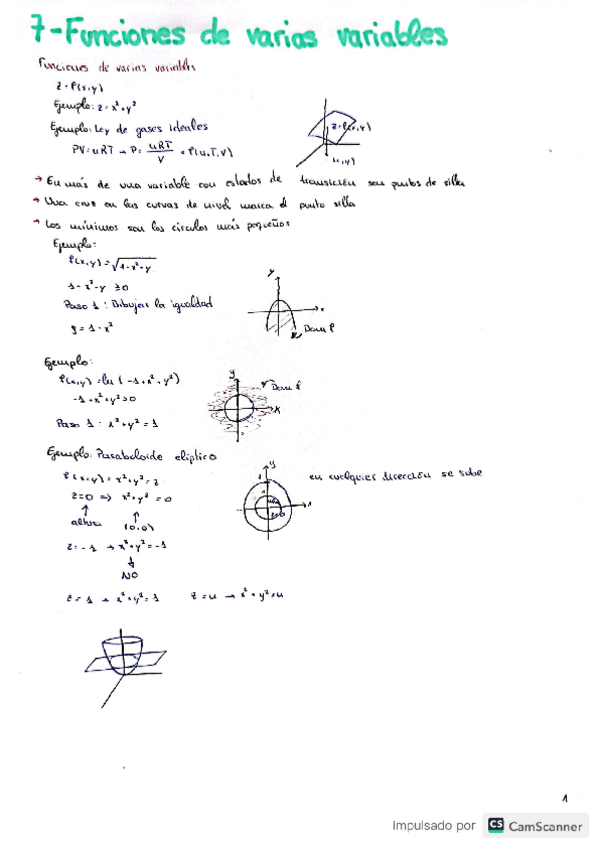 7-Funciones de varias variables
Funciones de varias variables
z = f(x,y)
Ejemplo: z = x² + y²
Ejemplo: Ley de gases ideales
PV = nRT → P = nRT/V = f(n,T,V)
z = f(x,y)
(x,y)
→ En más de una variable con estados de transición son puntos de silla
→ Una cruz en las curvas de nivel marca el punto silla
→ Los mínimos son los círculos más pequeños
Ejemplo:
f(x,y) = √1-x²-y
1-x²-y ≥0
Paso 1: Dibujar la igualdad
y = 1-x²
y
x
Dom f
Ejemplo:
f(x,y) = ln (-1+x²+y²)
-1+x²+y²>0
Paso 1: x²+y²=1
y
x
Dom f
Ejemplo: Paraboloide elíptico
f(x,y) = x²+y² = z
z=0 => x²+y²=0
altura
(0,0)
z=-1 → x²+y²=-1
NO
z=1 → x²+y²=1
z=4 → x²+y²=4
y
en cualquier dirección se sube
1
Impulsado por CS CamScanner